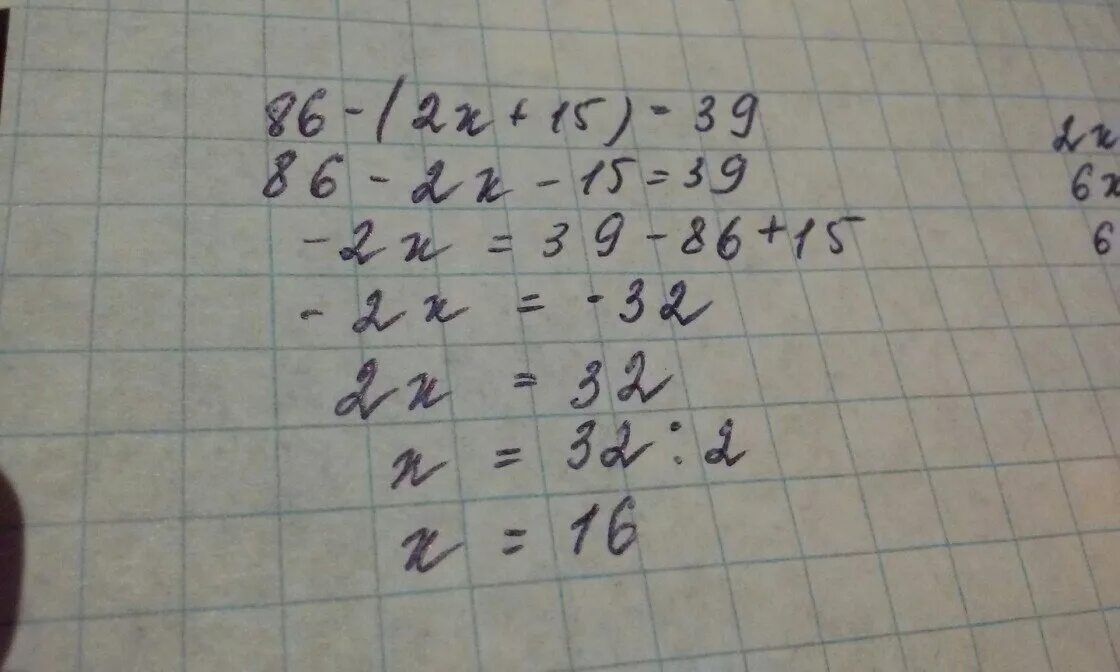 86-(2x+15)=39
86-2x-15=39
-2x=39-86+15
-2x=-32
2x=32
x=32:2
x=16
2x
6x
6